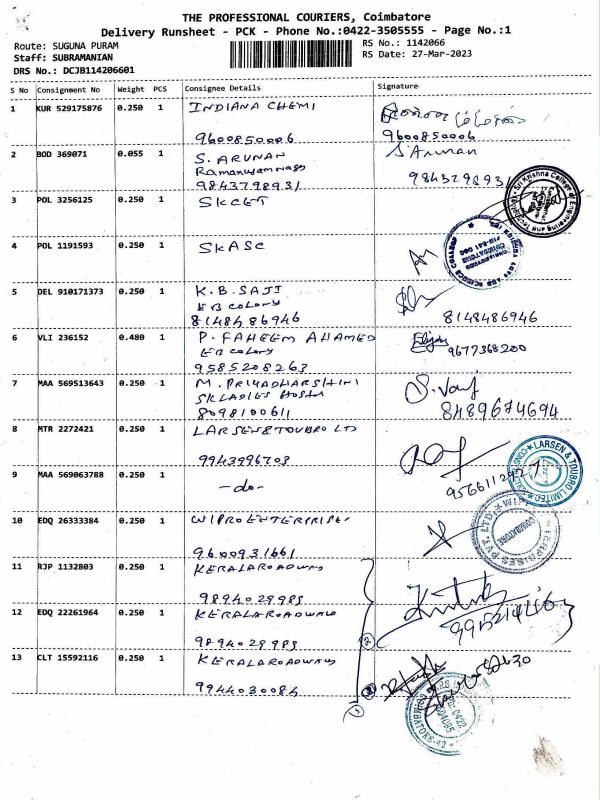 THE PROFESSIONAL COURIERS, Coimbatore
Delivery Runsheet - PCK - Phone No.:0422-3505555 - Page No.:1
Route: SUGUNA PURAM
RS No.: 1142066
Staff: SUBRAMANIAN
RS Date: 27-Mar-2023
DRS No.: DCJB114206601
S No Consignment No Weight PCS Consignee Details Signature
1 KUR 529175876 0.250 1 INDIANA CHEMI
9600850006 9600850006
2 BOD 369071 0.055 1 S. ARUNAN S. Arunan
Ramanujam nagar
9843798931 9843298931
3 POL 3256125 0.250 1 SKCET
Sri Krishna College of Engineering and Technology
4 POL 1191593 0.250 1 SKASC
5 DEL 910171373 0.250 1 K.B. SAJI
EB colony
8148486946 8148486946
6 VLI 236152 0.480 1 P. FAHEEM AHAMED
EB colony 9677368200
9585208263
7 MAA 569513643 0.250 1 M. PRIYADHARSHINI
SK LADIES Hostel
8098100611 8489674694
8 MTR 2272421 0.250 1 LARSEN & TOUBRO LTD
9943996703
LARSEN & TOUBRO LIMITED
9 MAA 569063788 0.250 1 -do-
10 EDQ 26333384 0.250 1 WIPRO ENTERPRISE
COIMBATORE
9600931661
11 RJP 1132803 0.250 1 KERALA ROADWAYS
9894029989
12 EDQ 22261964 0.250 1 KERALA ROADWAYS
9894029989
13 CLT 15592116 0.250 1 KERALA ROADWAYS
9944030084